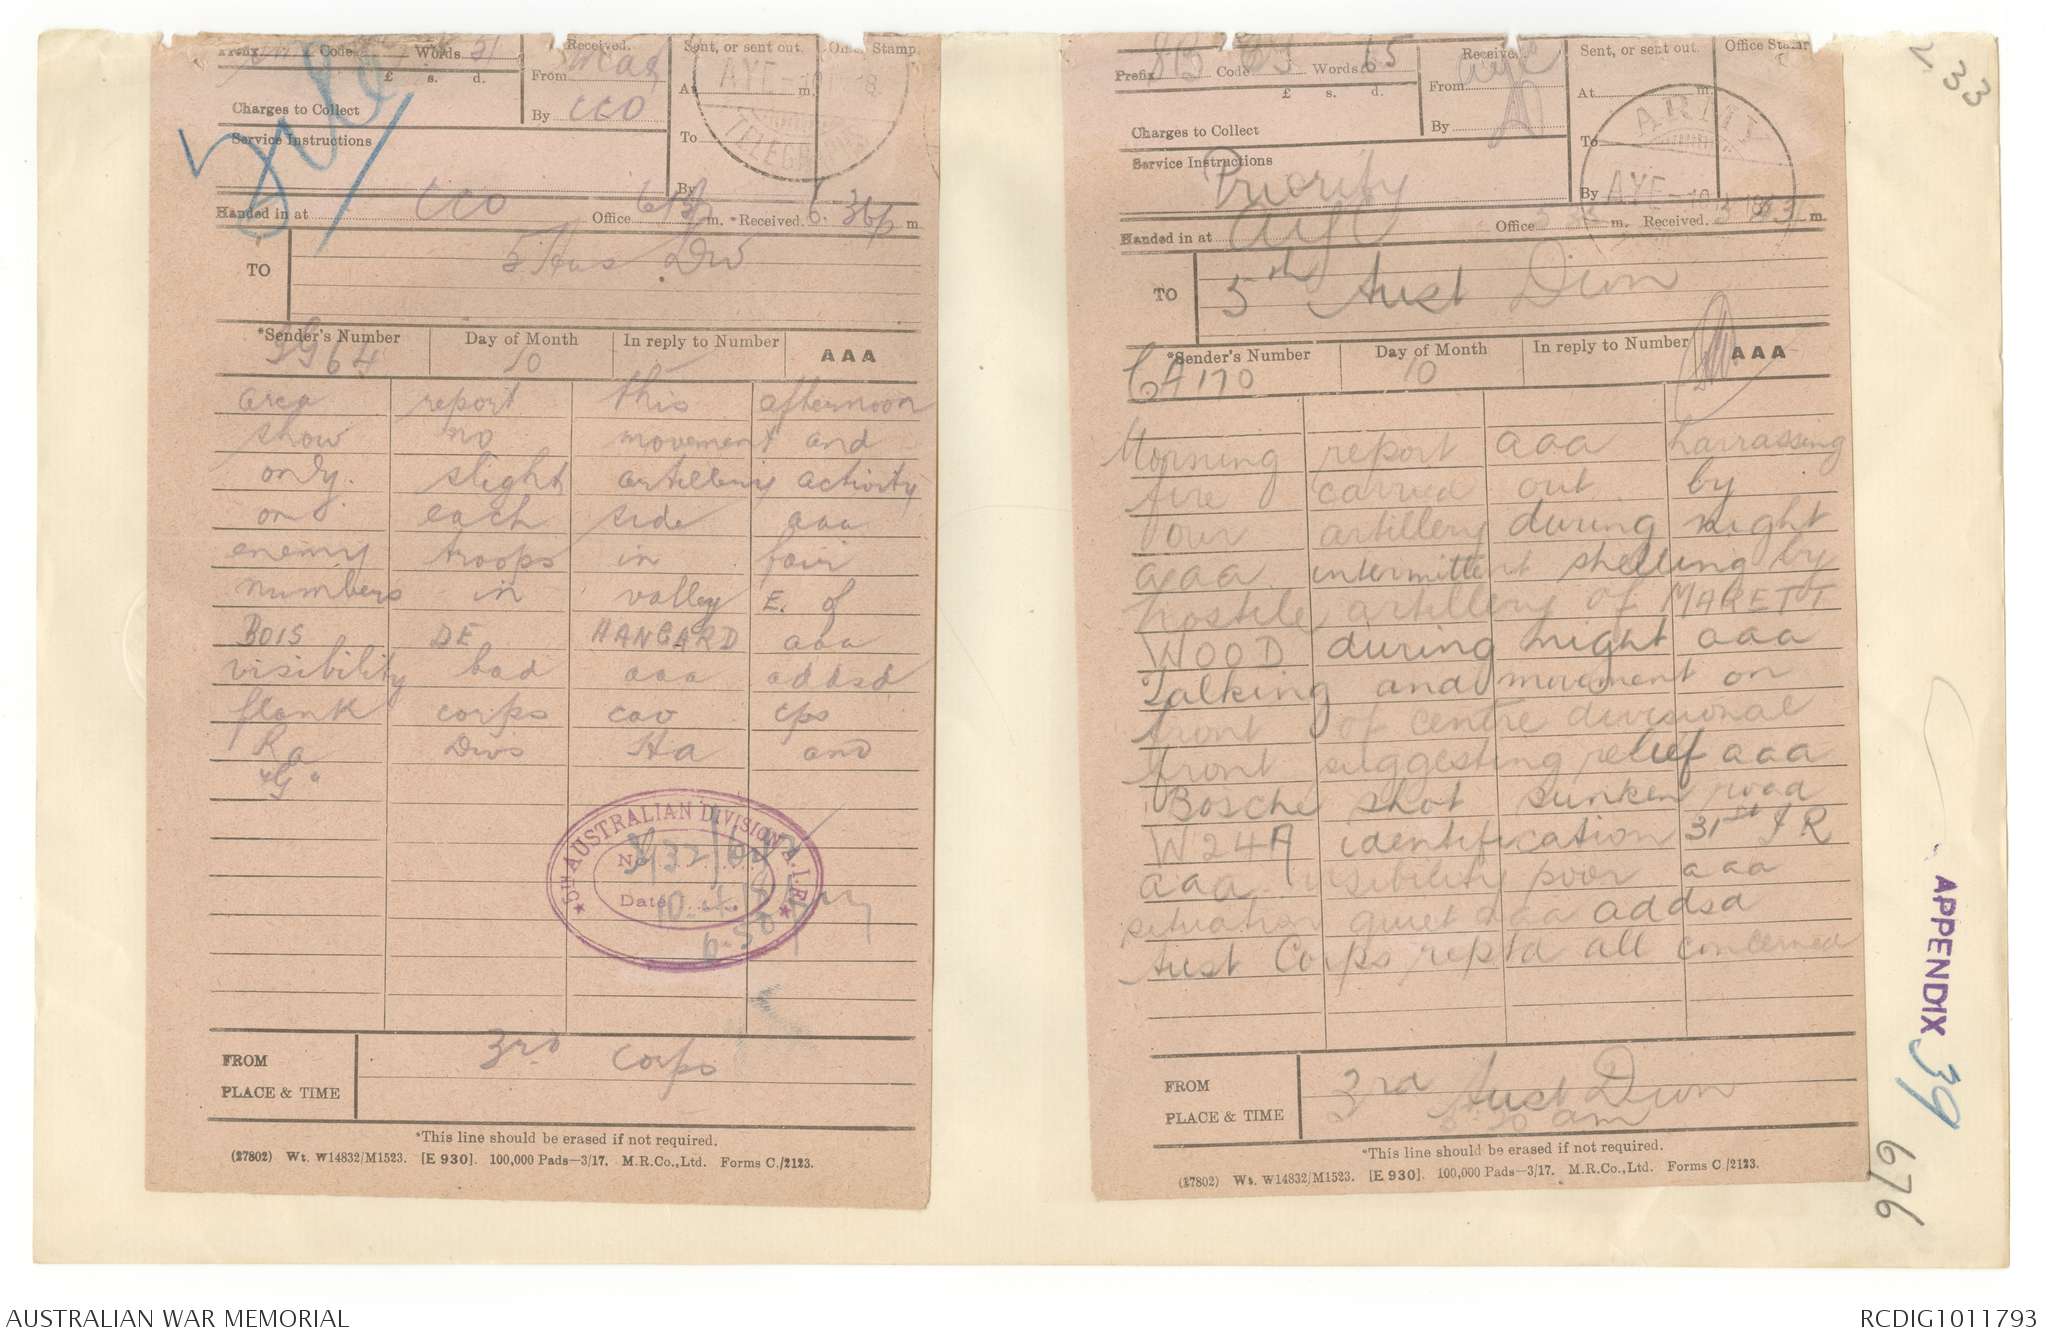 Prefix Code Words 31
£ s. d.
Charges to Collect
Service Instructions
Received.
From
By CCO
Sent, or sent out.
At m.
To
By
Office Stamp.
AYE
TELEGRAPHS
Handed in at CCO Office m. Received 6.36 p m.
TO
5 Aus Div
*Sender's Number
Day of Month
In reply to Number
AAA
GG64
10
area report this afternoon
show no movement and
only slight artillery activity
on each side aaa
enemy troops in fair
numbers in valley E. of
BOIS DE HANGARD aaa
visibility bad aaa addsd
flank corps cav cps
Ra Divs Ha and
"G"
5TH AUSTRALIAN DIVISION A.I.F.
No.
Date 10.4.18
6.50
FROM
PLACE & TIME
3rd Corps
*This line should be erased if not required.
(27802) Wt. W14832/M1523. [E 930]. 100,000 Pads—3/17. M.R.Co.,Ltd. Forms C./2123.
Prefix SB Code Words 65
£ s. d.
Charges to Collect
Service Instructions
Priority
Received.
From aye
By
Sent, or sent out.
At m.
To
By
Office Stamp
ARMY
AYE
Handed in at aye Office m. Received m.
TO
5th Aust Divn
*Sender's Number
Day of Month
In reply to Number
AAA
GA170
10
Morning report aaa harrassing
fire carried out by
our artillery during night
aaa intermittent shelling by
hostile artillery of MARETT
WOOD during night aaa
Talking and movement on
front of centre divisional
front suggesting relief aaa
Bosche shot sunken road
W24A identification 31st I R
aaa visibility poor aaa
situation quiet aaa addsd
Aust Corps reptd all concerned
FROM
PLACE & TIME
3rd Aust Divn
am
*This line should be erased if not required.
(27802) Wt. W14832/M1523. [E 930]. 100,000 Pads—3/17. M.R.Co.,Ltd. Forms C/2123.
233
APPENDIX 39
676
AUSTRALIAN WAR MEMORIAL
RCDIG1011793